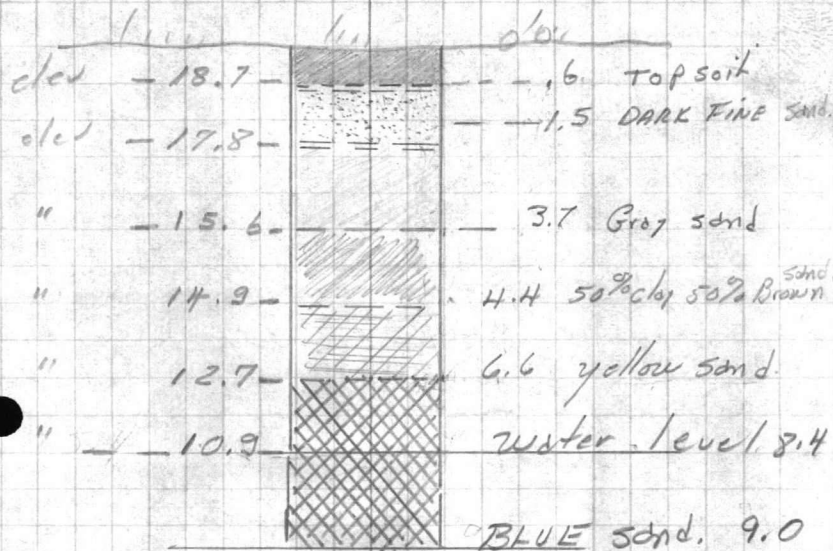 elev - 18.7 - .6 Top soil
elev 17.8 - 1.5 DARK FINE sand.
" - 15.6 - 3.7 Gray sand
" 14.9 - 4.4 50% clay 50% Brown sand
" 12.7 - 6.6 yellow sand.
" - 10.9 water level 8.4
BLUE sand. 9.0